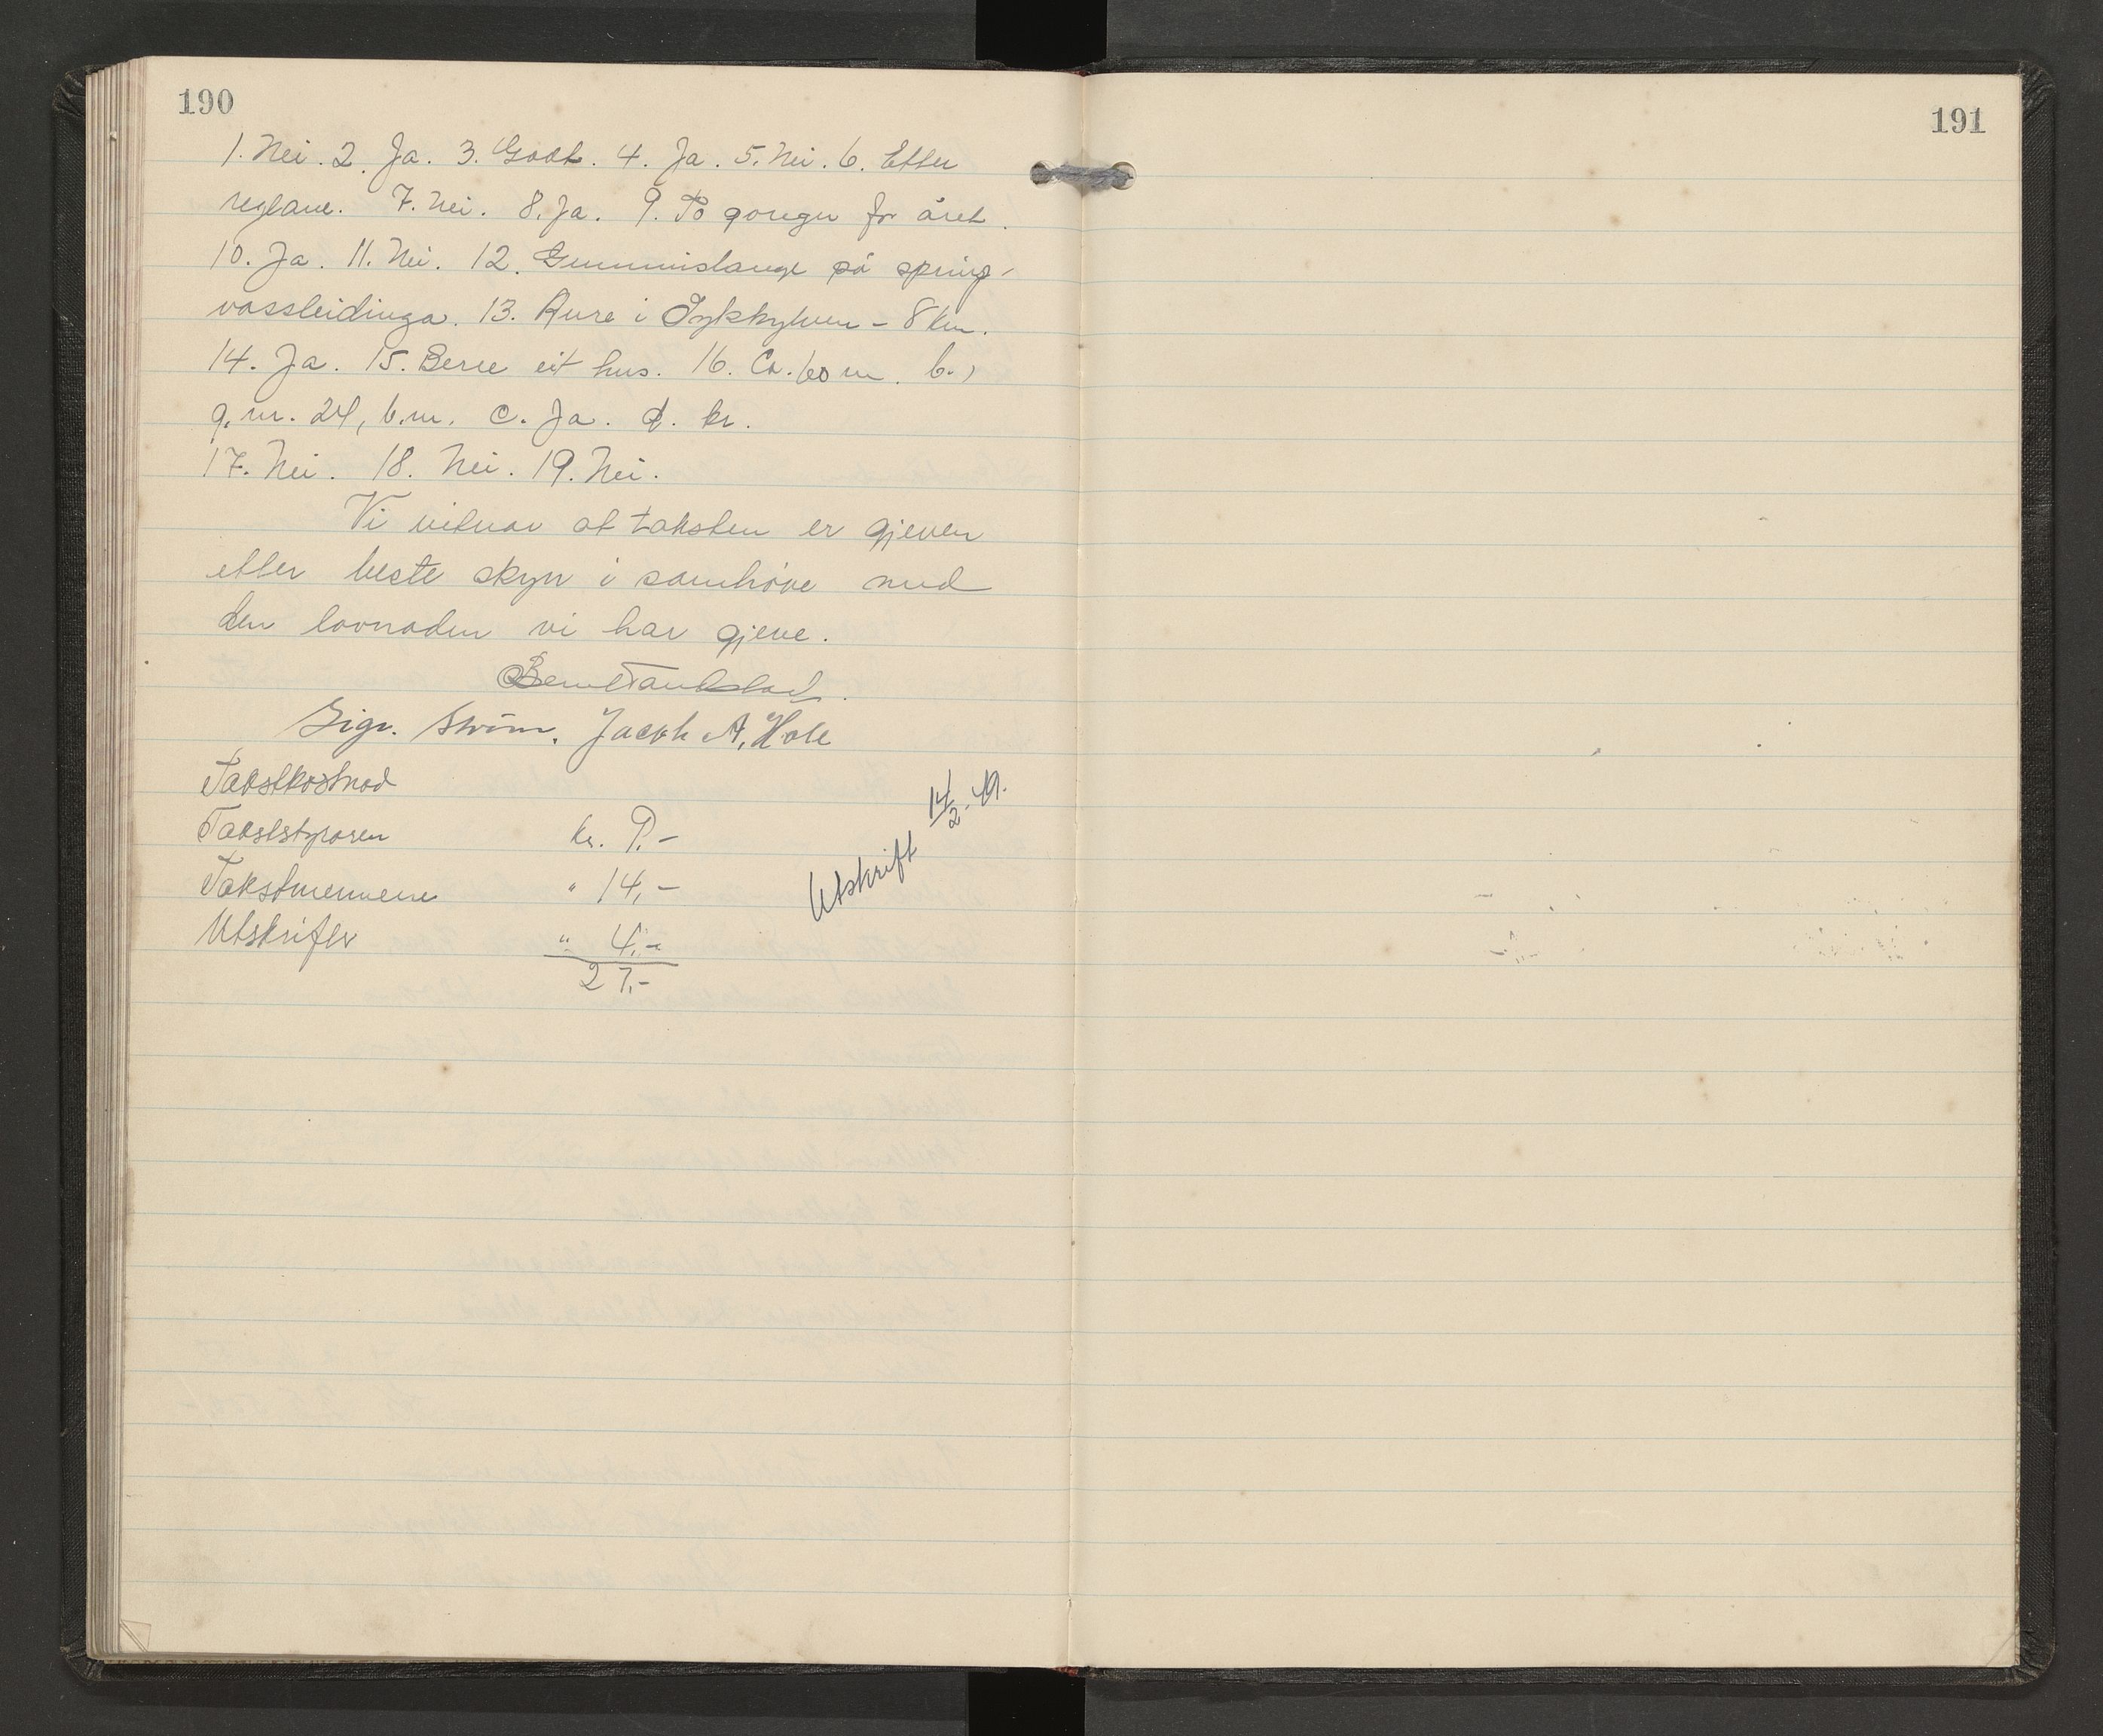 190
1. Nei. 2. Ja. 3. Godt. 4. Ja. 5. Nei. 6. Etter
reglane. 7. Nei. 8. Ja. 9. To gonger for året.
10. Ja. 11. Nei. 12. Gummislange på spring-
vassleidinga. 13. Aure i Sykkylven - 8 km.
14. Ja. 15. Berre eit hus. 16. Ca. 60 m. b.)
g.nr. 24, b.nr. c. Ja. d. kr.
17. Nei. 18. Nei. 19. Nei.
Vi vitnar at taksten er gjeven
etter beste skyn i samhöve med
den lovnaden vi har gjeve.
Bernt Tandstad.
Sigv. Strøm. Jacob A. Hole
Takstkostnad
Takststyraren kr. 9.-
Takstmennene " 14,-
Utskrifter " 4,-
27,-
Utskrift 14/2.49.
191